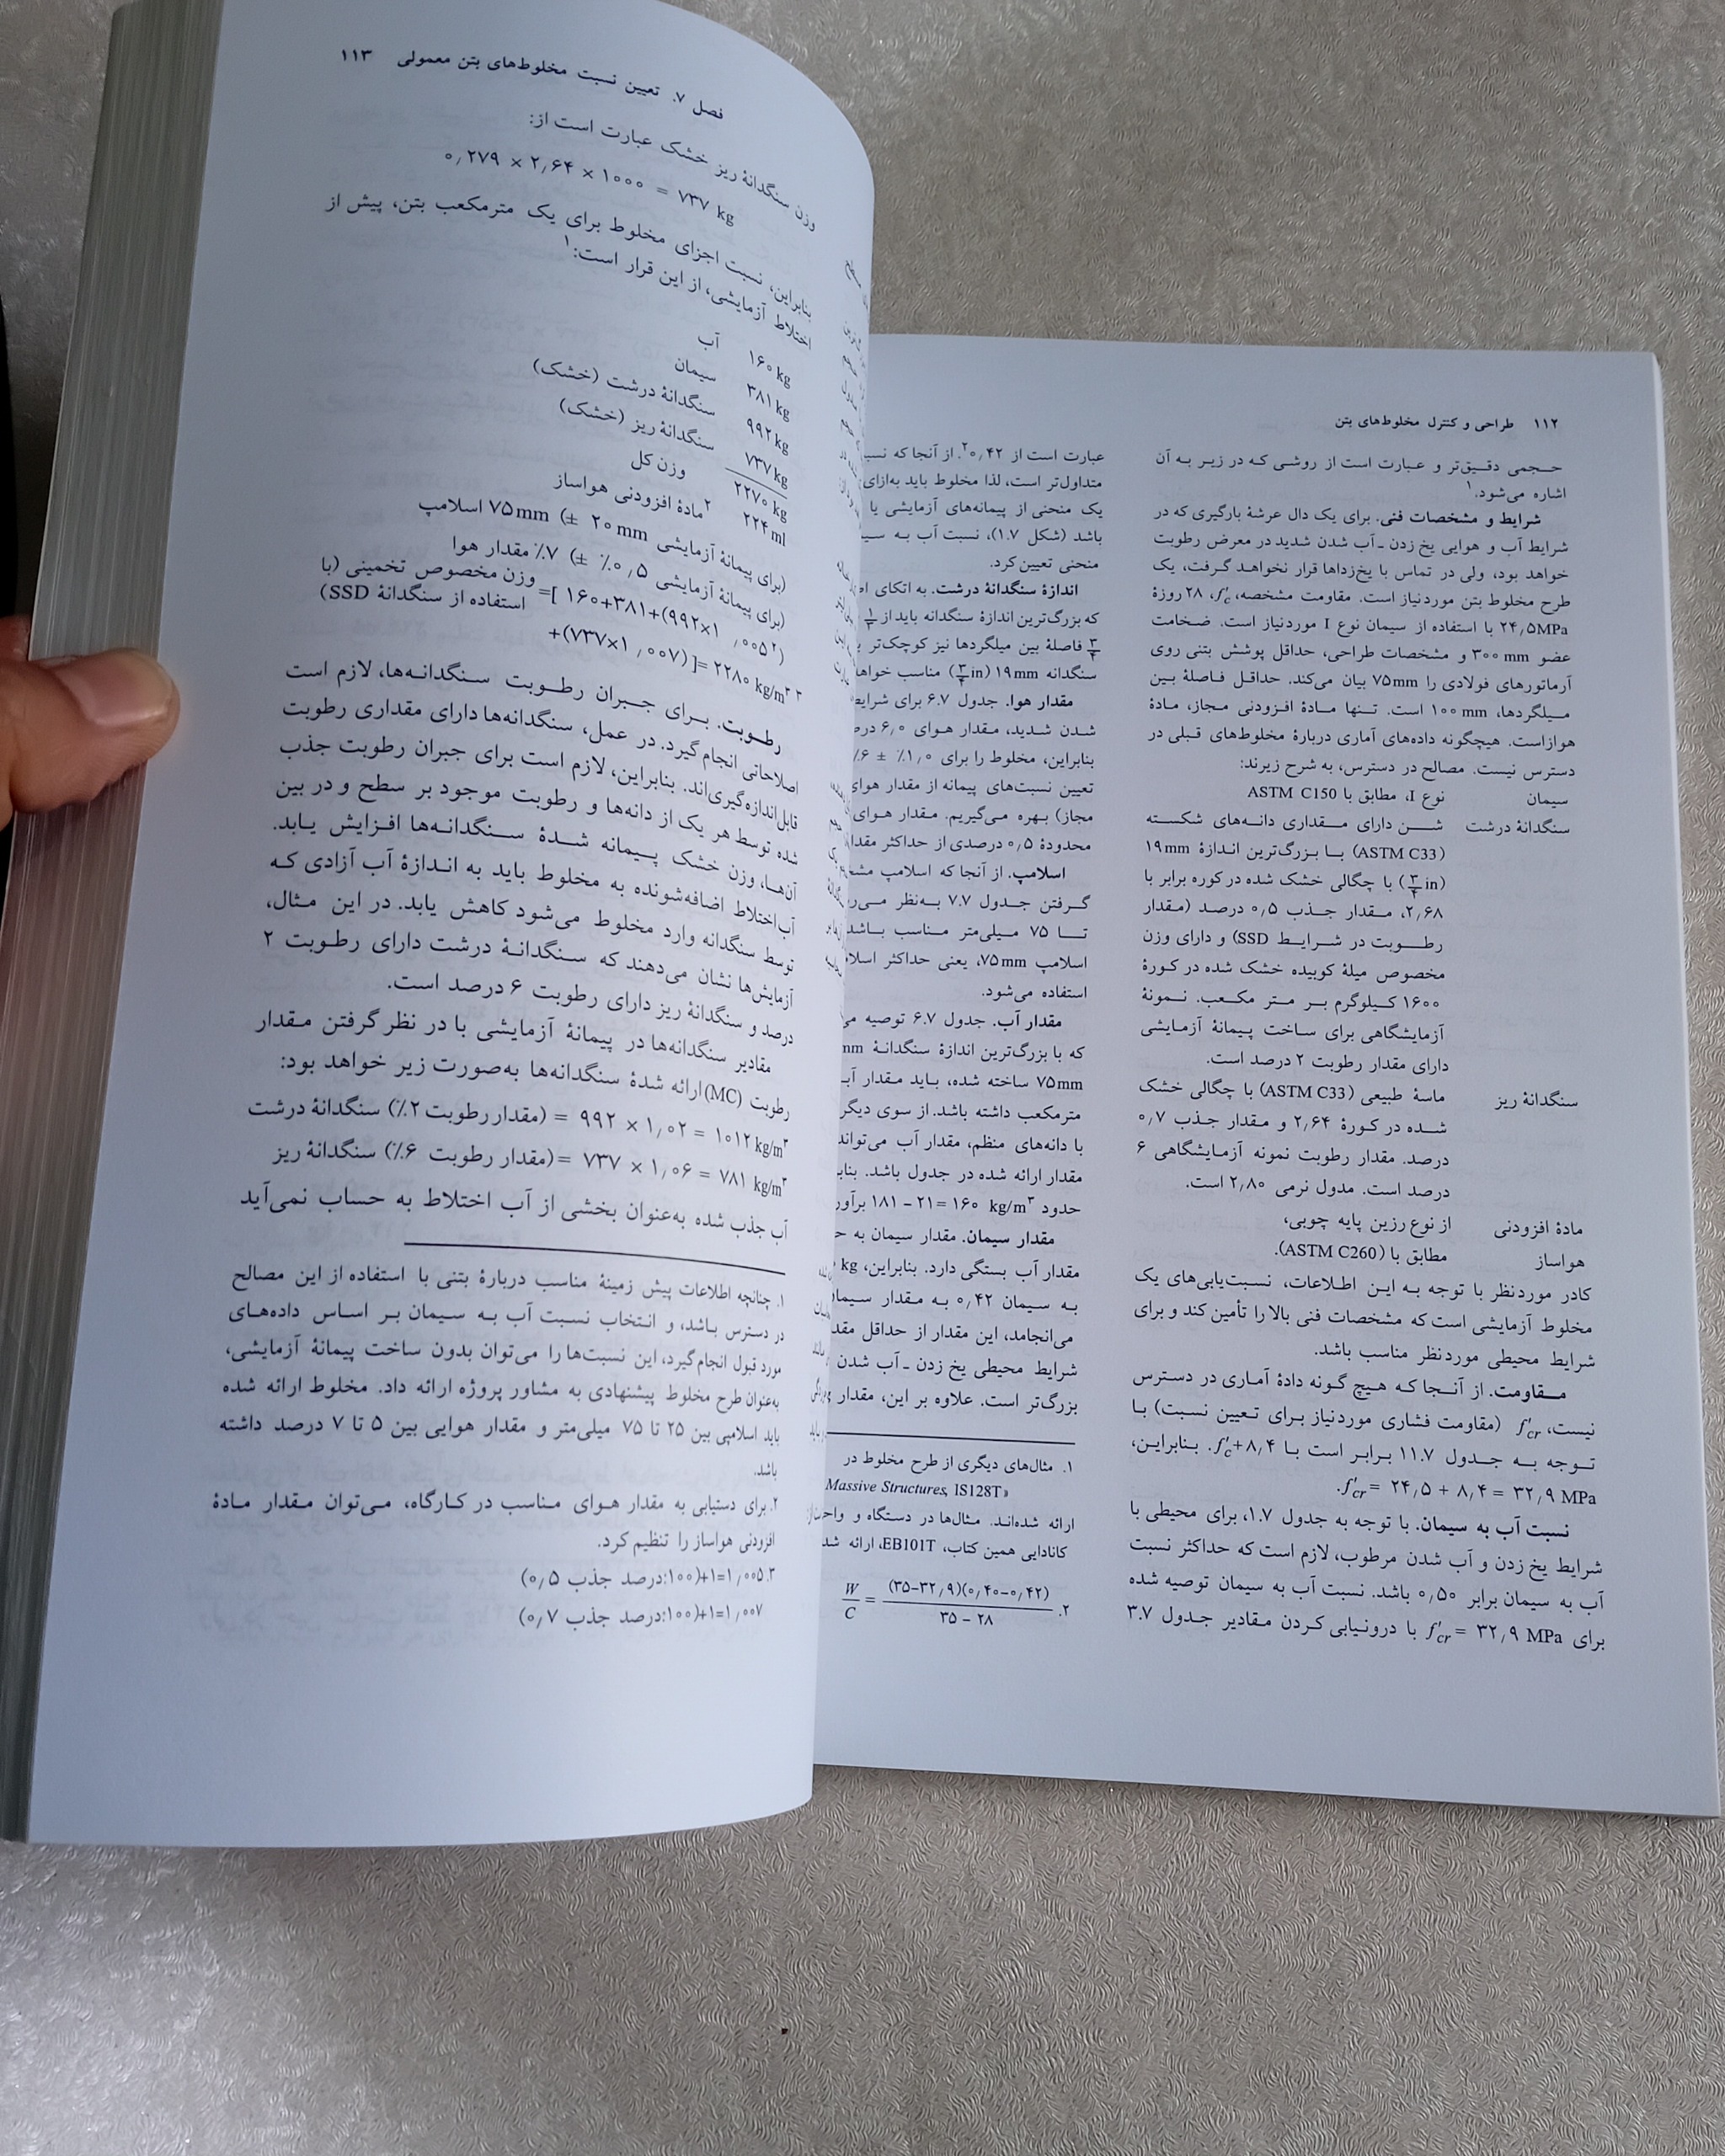 ۱۱۲ طراحی و کنترل مخلوط‌های بتن
حجمی دقیق‌تر و عبارت است از روشی که در زیر به آن
اشاره می‌شود.۱
شرایط و مشخصات فنی. برای یک دال عرشهٔ بارگیری که در
شرایط آب و هوایی یخ زدن ـ آب شدن شدید در معرض رطوبت
خواهد بود، ولی در تماس با یخ‌زداها قرار نخواهد گرفت، یک
طرح مخلوط بتن موردنیاز است. مقاومت مشخصه، f′c، ۲۸ روزهٔ
۲۴٫۵MPa با استفاده از سیمان نوع I موردنیاز است. ضخامت
عضو ۳۰۰ mm و مشخصات طراحی، حداقل پوشش بتنی روی
آرماتورهای فولادی را ۷۵mm بیان می‌کند. حداقل فاصلهٔ بین
میلگردها، ۱۰۰ mm است. تنها مادهٔ افزودنی مجاز، مادهٔ
هوازاست. هیچگونه داده‌های آماری دربارهٔ مخلوط‌های قبلی در
دسترس نیست. مصالح در دسترس، به شرح زیرند:
سیمان نوع I، مطابق با ASTM C150
سنگدانهٔ درشت شن دارای مقداری دانه‌های شکسته
(ASTM C33) با بزرگ‌ترین اندازهٔ ۱۹mm
(۳/۴ in) با چگالی خشک شده در کوره برابر با
۲٫۶۸، مقدار جذب ۰٫۵ درصد (مقدار
رطوبت در شرایط SSD) و دارای وزن
مخصوص میلهٔ کوبیده خشک شده در کورهٔ
۱۶۰۰ کیلوگرم بر متر مکعب. نمونهٔ
آزمایشگاهی برای ساخت پیمانهٔ آزمایشی
دارای مقدار رطوبت ۲ درصد است.
سنگدانهٔ ریز ماسهٔ طبیعی (ASTM C33) با چگالی خشک
شده در کورهٔ ۲٫۶۴ و مقدار جذب ۰٫۷
درصد. مقدار رطوبت نمونه آزمایشگاهی ۶
درصد است. مدول نرمی ۲٫۸۰ است.
مادهٔ افزودنی از نوع رزین پایه چوبی،
هواساز مطابق با (ASTM C260).
کادر موردنظر با توجه به این اطلاعات، نسبت‌یابی‌های یک
مخلوط آزمایشی است که مشخصات فنی بالا را تأمین کند و برای
شرایط محیطی موردنظر مناسب باشد.
مقاومت. از آنجا که هیچ گونه دادهٔ آماری در دسترس
نیست، f′cr (مقاومت فشاری موردنیاز برای تعیین نسبت) با
توجه به جدول ۱۱.۷ برابر است با f′c+۸٫۴. بنابراین،
f′cr = ۲۴٫۵ + ۸٫۴ = ۳۲٫۹ MPa.
نسبت آب به سیمان. با توجه به جدول ۱.۷، برای محیطی با
شرایط یخ زدن و آب شدن مرطوب، لازم است که حداکثر نسبت
آب به سیمان برابر ۰٫۵۰ باشد. نسبت آب به سیمان توصیه شده
برای f′cr = ۳۲٫۹ MPa با درونیابی کردن مقادیر جدول ۳.۷
عبارت است از ۰٫۴۲.۲ از آنجا که
متداول‌تر است، لذا مخلوط باید به‌ازای
یک منحنی از پیمانه‌های آزمایشی یا
باشد (شکل ۱.۷)، نسبت آب به
منحنی تعیین کرد.
اندازهٔ سنگدانهٔ درشت. به اتکای
که بزرگ‌ترین اندازهٔ سنگدانه باید از
۳/۴ فاصلهٔ بین میلگردها نیز کوچک‌تر
سنگدانه ۱۹mm (۳/۴ in) مناسب
مقدار هوا. جدول ۶.۷ برای
شدن شدید، مقدار هوای ۶٫۰
بنابراین، مخلوط را برای ۱٫۰٪ ± ۶٪
تعیین نسبت‌های پیمانه از مقدار هوای
مجاز) بهره می‌گیریم. مقدار هوای
محدودهٔ ۰٫۵ درصدی از حداکثر
اسلامپ. از آنجا که اسلامپ
گرفتن جدول ۷.۷ به‌نظر
تا ۷۵ میلی‌متر مناسب باشد
اسلامپ ۷۵mm، یعنی حداکثر
استفاده می‌شود.
مقدار آب. جدول ۶.۷ توصیه
که با بزرگ‌ترین اندازهٔ سنگدانهٔ mm
۷۵mm ساخته شده، باید مقدار
مترمکعب داشته باشد. از سوی دیگر
با دانه‌های منظم، مقدار آب می‌تواند
مقدار ارائه شده در جدول باشد.
حدود ۱۸۱ − ۲۱ = ۱۶۰ kg/m۳
مقدار سیمان. مقدار سیمان به
مقدار آب بستگی دارد. بنابراین، kg
به سیمان ۰٫۴۲ به مقدار
می‌انجامد، این مقدار از حداقل
شرایط محیطی یخ زدن ـ آب شدن
بزرگ‌تر است. علاوه بر این، مقدار
۱. مثال‌های دیگری از طرح مخلوط در
Massive Structures, IS128T
ارائه شده‌اند. مثال‌ها در دستگاه و
کانادایی همین کتاب، EB101T، ارائه
۲. W/C = (۳۵−۳۲٫۹)(۰٫۴۰−۰٫۴۲) / ۳۵ − ۲۸
فصل ۷. تعیین نسبت مخلوط‌های بتن معمولی ۱۱۳
وزن سنگدانهٔ ریز خشک عبارت است از:
۰٫۲۷۹ × ۲٫۶۴ × ۱۰۰۰ = ۷۳۷ kg
بنابراین، نسبت اجزای مخلوط برای یک مترمکعب بتن، پیش از
اختلاط آزمایشی، از این قرار است:۱
آب ۱۶۰ kg
سیمان ۳۸۱ kg
سنگدانهٔ درشت (خشک) ۹۹۲ kg
سنگدانهٔ ریز (خشک) ۷۳۷ kg
وزن کل ۲۲۷۰ kg
مادهٔ افزودنی هواساز۲ ۲۲۴ ml
(برای پیمانهٔ آزمایشی ۲۰ mm ±) ۷۵ mm اسلامپ
(برای پیمانهٔ آزمایشی ۰٫۵٪ ±) ۷٪ مقدار هوا
وزن مخصوص تخمینی (با =[ ۱۶۰+۳۸۱+(۹۹۲×۱٫۰۰۵۲)
استفاده از سنگدانهٔ SSD) +(۷۳۷×۱٫۰۰۷) ]= ۲۲۸۰ kg/m۳ ۳
رطوبت. برای جبران رطوبت سنگدانه‌ها، لازم است
اصلاحاتی انجام گیرد. در عمل، سنگدانه‌ها دارای مقداری رطوبت
قابل‌اندازه‌گیری‌اند. بنابراین، لازم است برای جبران رطوبت جذب
شده توسط هر یک از دانه‌ها و رطوبت موجود بر سطح و در بین
آن‌ها، وزن خشک پیمانه شدهٔ سنگدانه‌ها افزایش یابد.
آب‌اختلاط اضافه‌شونده به مخلوط باید به اندازهٔ آب آزادی که
توسط سنگدانه وارد مخلوط می‌شود کاهش یابد. در این مثال،
آزمایش‌ها نشان می‌دهند که سنگدانهٔ درشت دارای رطوبت ۲
درصد و سنگدانهٔ ریز دارای رطوبت ۶ درصد است.
مقادیر سنگدانه‌ها در پیمانهٔ آزمایشی با در نظر گرفتن مقدار
رطوبت (MC) ارائه شدهٔ سنگدانه‌ها به‌صورت زیر خواهد بود:
سنگدانهٔ درشت (مقدار رطوبت ۲٪) = ۹۹۲ × ۱٫۰۲ = ۱۰۱۲ kg/m۳
سنگدانهٔ ریز (مقدار رطوبت ۶٪) = ۷۳۷ × ۱٫۰۶ = ۷۸۱ kg/m۳
آب جذب شده به‌عنوان بخشی از آب اختلاط به حساب نمی‌آید
۱. چنانچه اطلاعات پیش زمینهٔ مناسب دربارهٔ بتنی با استفاده از این مصالح
در دسترس باشد، و انتخاب نسبت آب به سیمان بر اساس داده‌های
مورد قبول انجام گیرد، این نسبت‌ها را می‌توان بدون ساخت پیمانهٔ آزمایشی،
به‌عنوان طرح مخلوط پیشنهادی به مشاور پروژه ارائه داد. مخلوط ارائه شده
باید اسلامپی بین ۲۵ تا ۷۵ میلی‌متر و مقدار هوایی بین ۵ تا ۷ درصد داشته
باشد.
۲. برای دستیابی به مقدار هوای مناسب در کارگاه، می‌توان مقدار مادهٔ
افزودنی هواساز را تنظیم کرد.
۳. ۱٫۰۰۵=۱+(۱۰۰:درصد جذب ۰٫۵)
۱٫۰۰۷=۱+(۱۰۰:درصد جذب ۰٫۷)